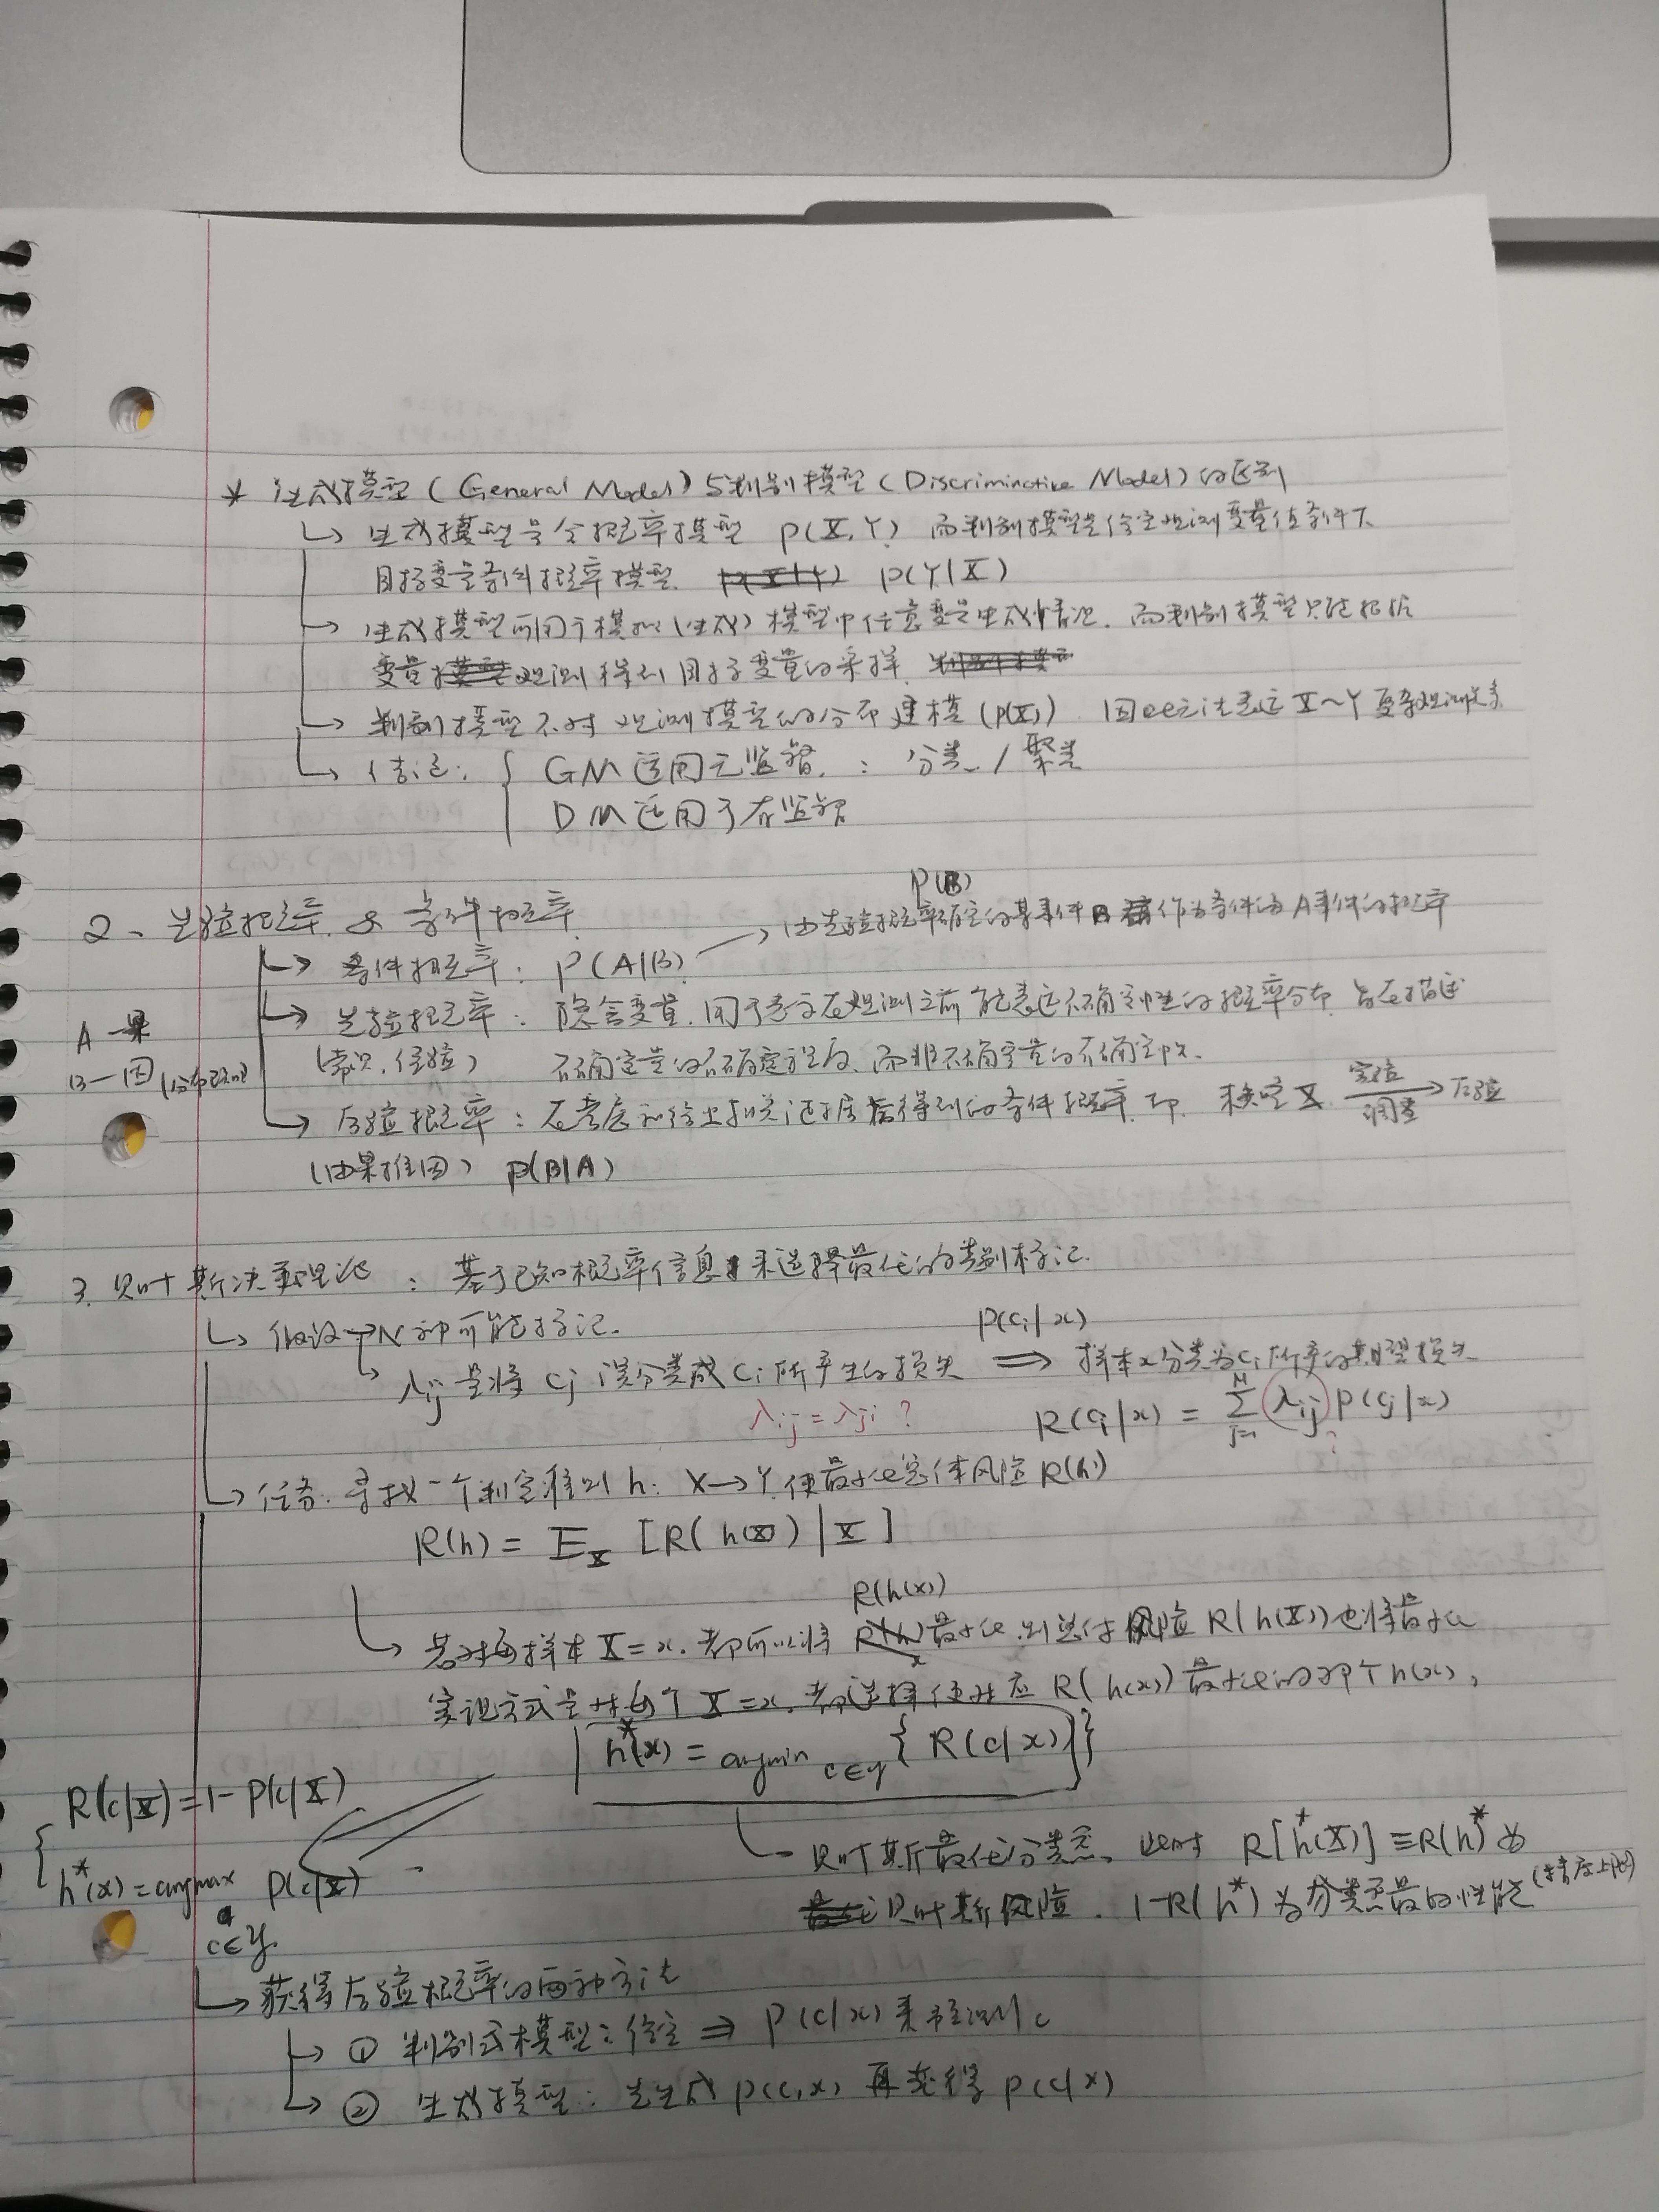 * 生成模型 (General Model) 与判别模型 (Discriminative Model) 的区别
↳ 生成模型是全概率模型 P(X,Y) 而判别模型是给定观测变量值条件下
目标变量条件概率模型. P(Y|X)
↳ 生成模型可用于模拟(生成)模型中任意变量生成情况. 而判别模型只能根据
变量观测得到目标变量的采样.
↳ 判别模型不对观测模型的分布建模 (P(X)) 因此无法表达 X~Y 复杂观测关系
↳ 结论: { GM 适用无监督. : 分类 / 聚类
DM 适用于有监督
2、先验概率 & 条件概率
↳ 条件概率: P(A|B) → 由先验概率确定的某事件B 作为条件的A事件的概率
P(B)
↳ 先验概率: 隐含变量. 用于表示在观测之前能表达不确定性的概率分布. 旨在描述
(常识, 经验) 不确定量的不确定程度, 而非不确定量的不确定性.
A—果
B—因 (分布已知)
↳ 后验概率: 在考虑和给出相关证据后得到的条件概率. 即 未确定X 实验/调查 → 后验
(由果推因) P(B|A)
3. 贝叶斯决策理论: 基于已知概率信息来选择最优的类别标记.
↳ 假设→N种可能标记.
↳ λij 是将 Cj 误分类成 Ci 所产生的损失 ⟹ 样本x分类为Ci所产的期望损失
P(Ci|x)
λij = λji ?
R(Ci|x) = Σ_{j=1}^{N} λij P(Cj|x)
?
↳ 任务: 寻找一个判定准则 h: X→Y 使最小化总体风险 R(h)
R(h) = E_X [R(h(X)|X]
R(h(x))
↳ 若对每样本 X=x. 都可以将 R(h) 最小化. 则总体风险 R(h(X)) 也将最小化
实现方式是对每个 X=x. 都选择使对应 R(h(x)) 最小化的那个 h(x),
h*(x) = argmin_{c∈y} { R(c|x) }
R(c|X) = 1- P(c|X)
h*(x) = argmax P(c|X)
c∈y.
贝叶斯最优分类器, 此时 R[h*(X)] ≡ R(h)* 为
贝叶斯风险. 1-R(h*) 为分类器最的性能 (精度上限)
↳ 获得后验概率的两种方法
↳ ① 判别式模型: 给定 ⇒ P(c|x) 来预测 c
↳ ② 生成模型: 先生成 P(c,x) 再获得 P(c|x)